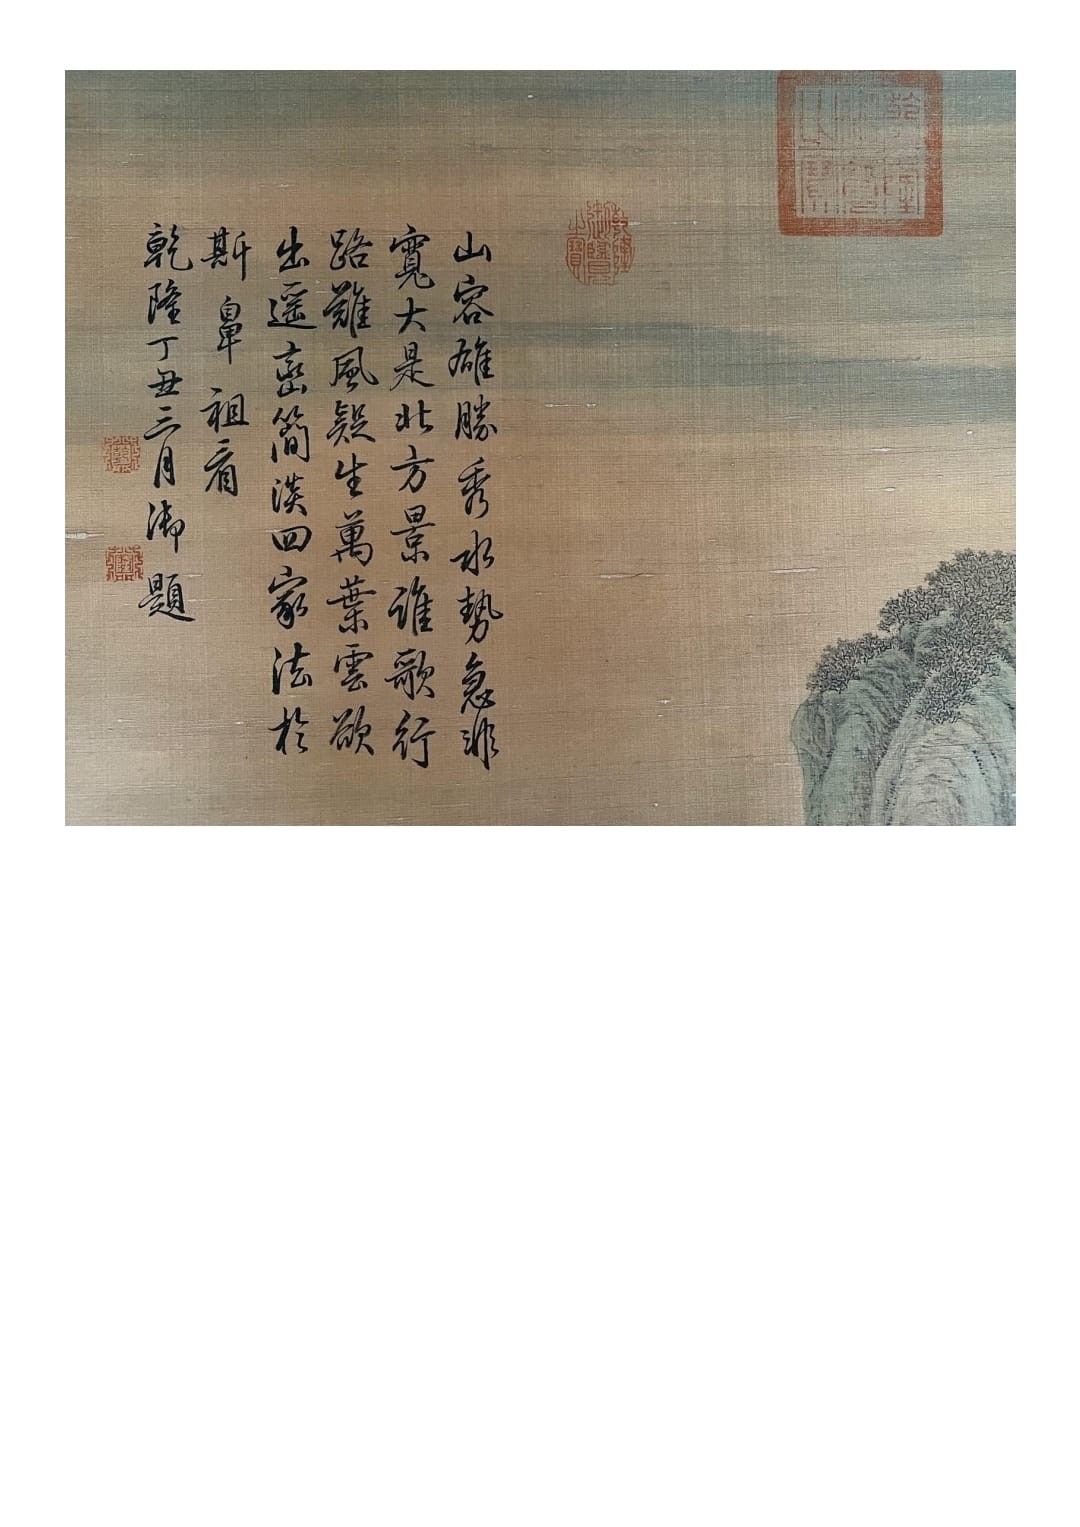 乾隆御覽之寶
山容雄勝秀水勢急非
寬大是北方景誰歌行
路難風疑生萬葉雲欲
出遥巒簡淡四家法於
斯鼻祖看
乾隆丁丑三月御題